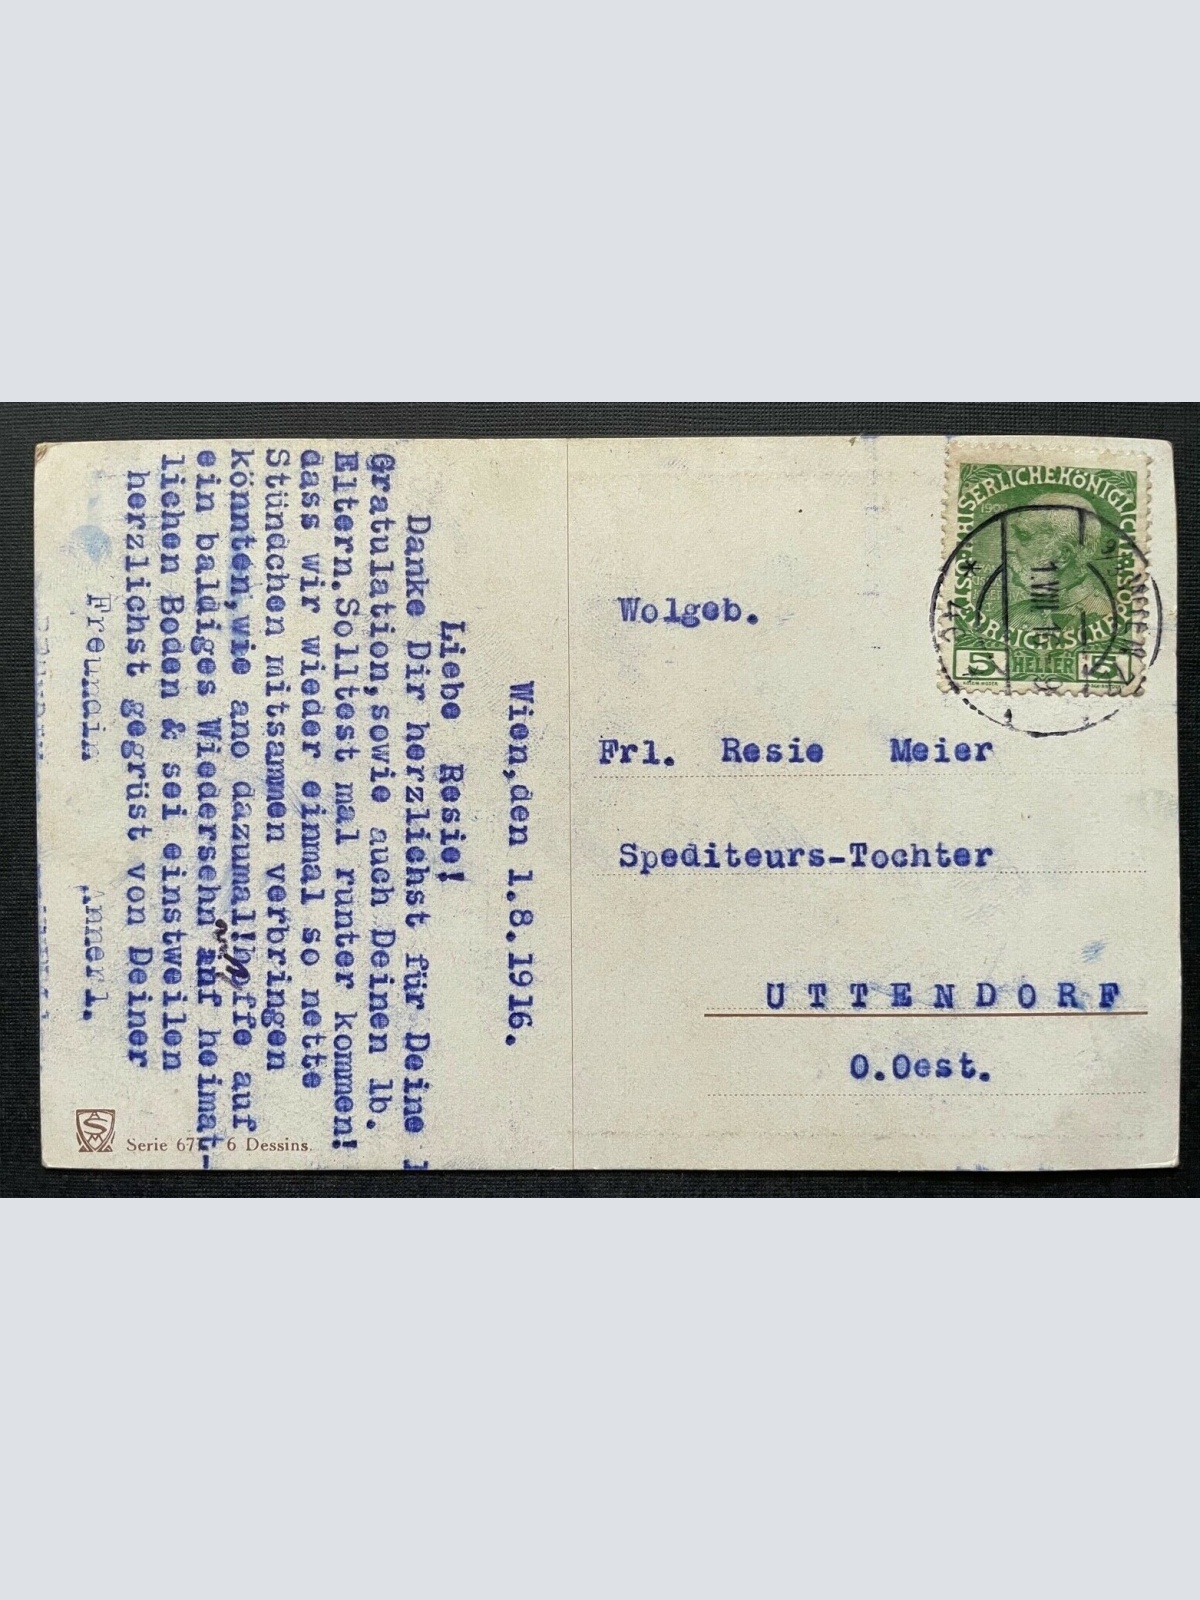 Wien,den 1.8.1916.
Liebe Resie!
Danke Dir herzlichst für Deine
Gratulation,sowie auch Deinen lb.
Eltern.Solltest mal runter kommen!
dass wir wieder einmal so nette
Stündchen mitsammen verbringen
könnten,wie ano dazumal!hoffe auf
ein baldiges Wiedersehn auf heimat-
lichen Boden & sei einstweilen
herzlichst gegrüst von Deiner
Freundin
Annerl.
Serie 677 6 Dessins.
Wolgeb.
Frl. Resie Meier
Spediteurs-Tochter
UTTENDORF
O.Oest.
KAISERLICHEKÖNIGLICHE ÖSTERREICHISCHE
1908
5 HELLER 5
1.VIII.16